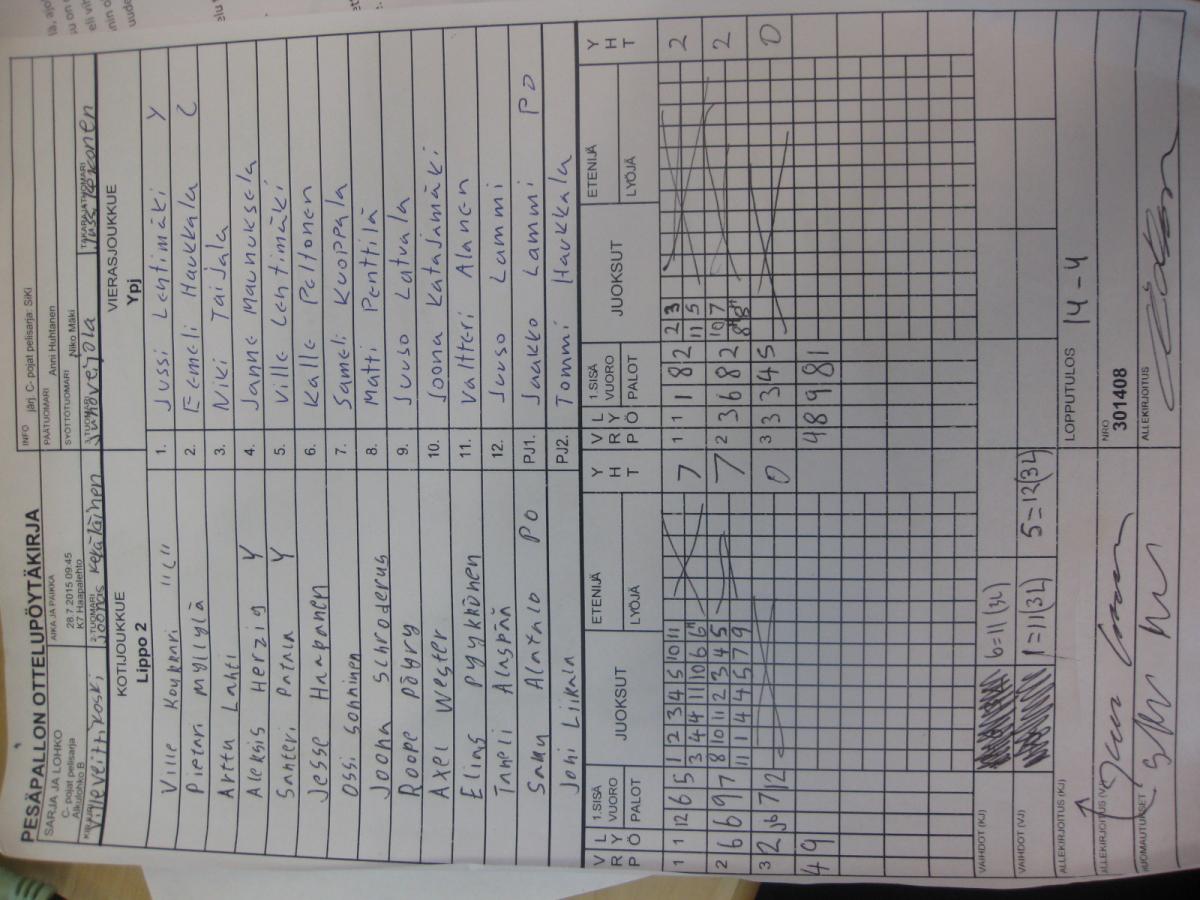 PESÄPALLON OTTELUPÖYTÄKIRJA
SARJA JA LOHKO
C- pojat pelisarja
Alkulohko B
AIKA JA PAIKKA
28.7.2015 09:45
K7 Haapalehto
INFO järj. C- pojat pelisarja: SiKi
PÄÄTUOMARI Anni Huhtanen
SYÖTTÖTUOMARI Niko Mäki
2-TUOMARI Joonas Keräläinen
3-TUOMARI
TAKARAJATUOMARI
KOTIJOUKKUE
Lippo 2
VIERASJOUKKUE
Ypj
Ville Koukkari "C" 1. Jussi Lehtimäki Y
Pietari Myllylä 2. Eemeli Haukkala C
Arttu Lahti 3. Niki Taijala
Aleksis Herzig Y 4. Janne Maunuksela
Santeri Patala Y 5. Ville Lehtimäki
Jesse Haapanen 6. Kalle Peltonen
Ossi Sohninen 7. Sameli Kuoppala
Jooha Schroderus 8. Matti Penttilä
Roope Pöyry 9. Juuso Latvala
Axel Wester 10. Joona Katajamäki
Elias Pyykkönen 11. Valtteri Alanen
Taneli Alaspää 12. Juuso Lammi
Samu Alatalo PO PJ1. Jaakko Lammi PO
Joni Liikala PJ2. Tommi Haukkala
V R P L Y Ö 1.SISÄ VUORO PALOT JUOKSUT ETENIJÄ LYÖJÄ Y H T V R P L Y Ö 1.SISÄ VUORO PALOT JUOKSUT ETENIJÄ LYÖJÄ Y H T
1 1 12 6 5 1 2 3 4 5 10 11 7 1 1 1 8 2 2 3 2
3 4 4 11 10 6 6 11 5
2 6 6 9 7 8 10 11 2 3 4 5 7 2 3 6 8 2 10 7 2
11 1 4 4 5 7 9
3 2 7 12 0 3 3 3 4 5 0
4 9 4 8 9 8 1
VAIHDOT (KJ) 6=11 (3L)
VAIHDOT (VJ) 1=11 (3L) 5=12 (3L)
ALLEKIRJOITUS (KJ)
LOPPUTULOS 14-4
ALLEKIRJOITUS (VJ)
NRO
301408
HUOMAUTUKSET
ALLEKIRJOITUS